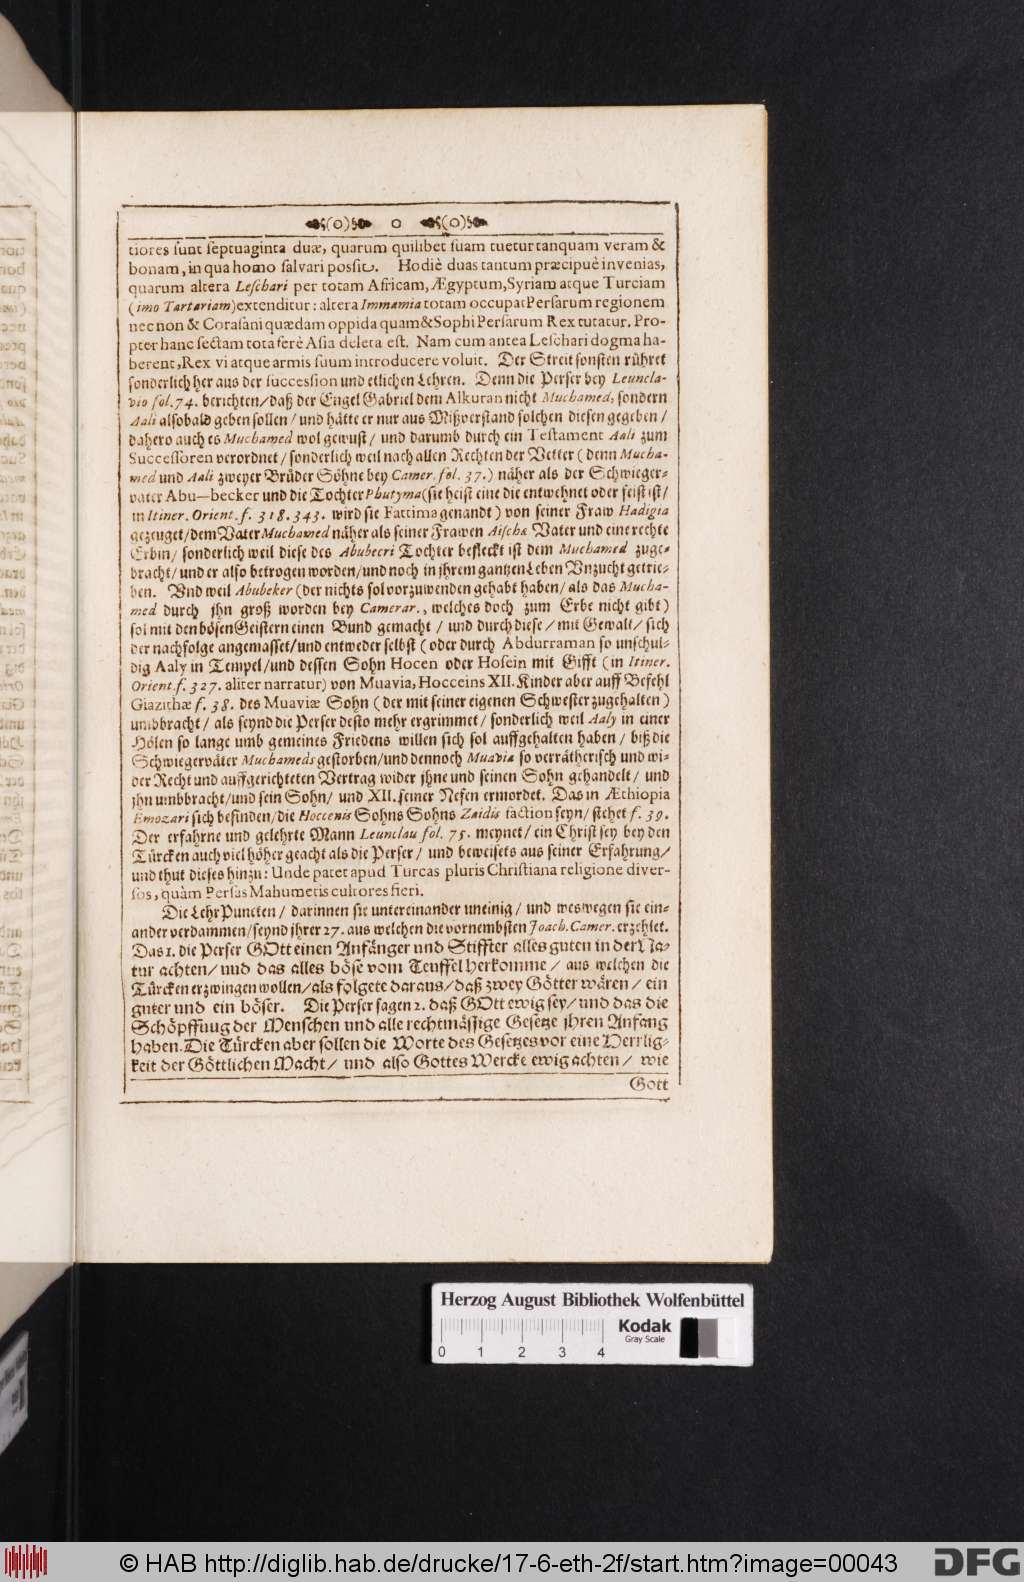 (o) o (o)
tiores sunt septuaginta duæ, quarum quilibet suam tuetur tanquam veram &
bonam, in qua homo salvari possit. Hodiè duas tantum præcipuè invenias,
quarum altera Leschari per totam Africam, Ægyptum, Syriam atque Turciam
(imo Tartariam) extenditur: altera Immamia totam occupat Persarum regionem
nec non & Corasani quædam oppida quam & Sophi Persarum Rex tutatur. Pro-
pter hanc sectam tota ferè Asia deleta est. Nam cum antea Leschari dogma ha-
berent, Rex vi atque armis suum introducere voluit. Der Streit sonsten rühret
sonderlich her aus der succession und etlichen Lehren. Denn die Perser bey Leuncla-
vio fol. 74. berichten/ daß der Engel Gabriel dem Alkuran nicht Muchamed, sondern
Aali alsobald geben sollen/ und hätte er nur aus Mißverstand solchen diesen gegeben/
dahero auch es Muchamed wol gewust/ und darumb durch ein Testament Aali zum
Successoren verordnet/ sonderlich weil nach allen Rechten der Vetter (denn Mucha-
med und Aali zweyer Brüder Söhne bey Camer. fol. 37.) näher als der Schwieger-
vater Abu-becker und die Tochter Phutyma (sie heist eine die entwehnet oder feist ist/
in Itiner. Orient. f. 318. 343. wird sie Fattima genandt) von seiner Fraw Hadigia
gezeuget/ dem Vater Muchamed näher als seiner Frawen Aischæ Vater und eine rechte
Erbin/ sonderlich weil diese des Abubecri Tochter befleckt ist dem Muchamed zuge-
bracht/ und er also betrogen worden/ und noch in jhrem gantzen Leben Vnzucht getrie-
ben. Vnd weil Abubeker (der nichts sol vorzuwenden gehabt haben/ als das Mucha-
med durch jhn groß worden bey Camerar., welches doch zum Erbe nicht gibt)
sol mit den bösen Geistern einen Bund gemacht/ und durch diese/ mit Gewalt/ sich
der nachfolge angemasset/ und entweder selbst (oder durch Abdurraman so unschul-
dig Aaly in Tempel/ und dessen Sohn Hocen oder Hosein mit Gifft (in Itiner.
Orient. f. 327. aliter narratur) von Muavia, Hocceins XII. Kinder aber auff Befehl
Giazithæ f. 38. des Muaviæ Sohn (der mit seiner eigenen Schwester zugehalten)
umbbracht/ als seynd die Perser desto mehr ergrimmet/ sonderlich weil Aaly in einer
Hölen so lange umb gemeines Friedens willen sich sol auffgehalten haben/ biß die
Schwiegerväter Muchameds gestorben/ und dennoch Muavia so verrätherisch und wi-
der Recht und auffgerichteten Vertrag wider jhne und seinen Sohn gehandelt/ und
jhn umbbracht/ und sein Sohn/ und XII. seiner Nefen ermordet. Das in Æthiopia
Emozari sich befinden/ die Hoccenis Sohns Sohns Zaidis faction seyn/ stehet f. 39.
Der erfahrne und gelehrte Mann Leunclau fol. 75. meynet/ ein Christ sey bey den
Türcken auch viel höher geacht als die Perser/ und beweisets aus seiner Erfahrung/
und thut dieses hinzu: Unde patet apud Turcas pluris Christiana religione diver-
sos, quàm Persas Mahumetis cultores fieri.
Die Lehr Puncten/ darinnen sie untereinander uneinig/ und weswegen sie ein-
ander verdammen/ seynd jhrer 27. aus welchen die vornembsten Joach. Camer. erzehlet.
Das 1. die Perser GOtt einen Anfänger und Stiffter alles guten in der Na-
tur achten/ und das alles böse vom Teuffel herkomme/ aus welchen die
Türcken erzwingen wollen/ als folgete daraus/ daß zwey Götter wären/ ein
guter und ein böser. Die Perser sagen 2. daß GOtt ewig sey/ und das die
Schöpffnug der Menschen und alle rechtmässige Gesetze jhren Anfang
haben. Die Türcken aber sollen die Worte des Gesetzes vor eine Herrlig-
keit der Göttlichen Macht/ und also Gottes Wercke ewig achten/ wie
Gott
Herzog August Bibliothek Wolfenbüttel
Kodak
Gray Scale
0 1 2 3 4
© HAB http://diglib.hab.de/drucke/17-6-eth-2f/start.htm?image=00043
DFG